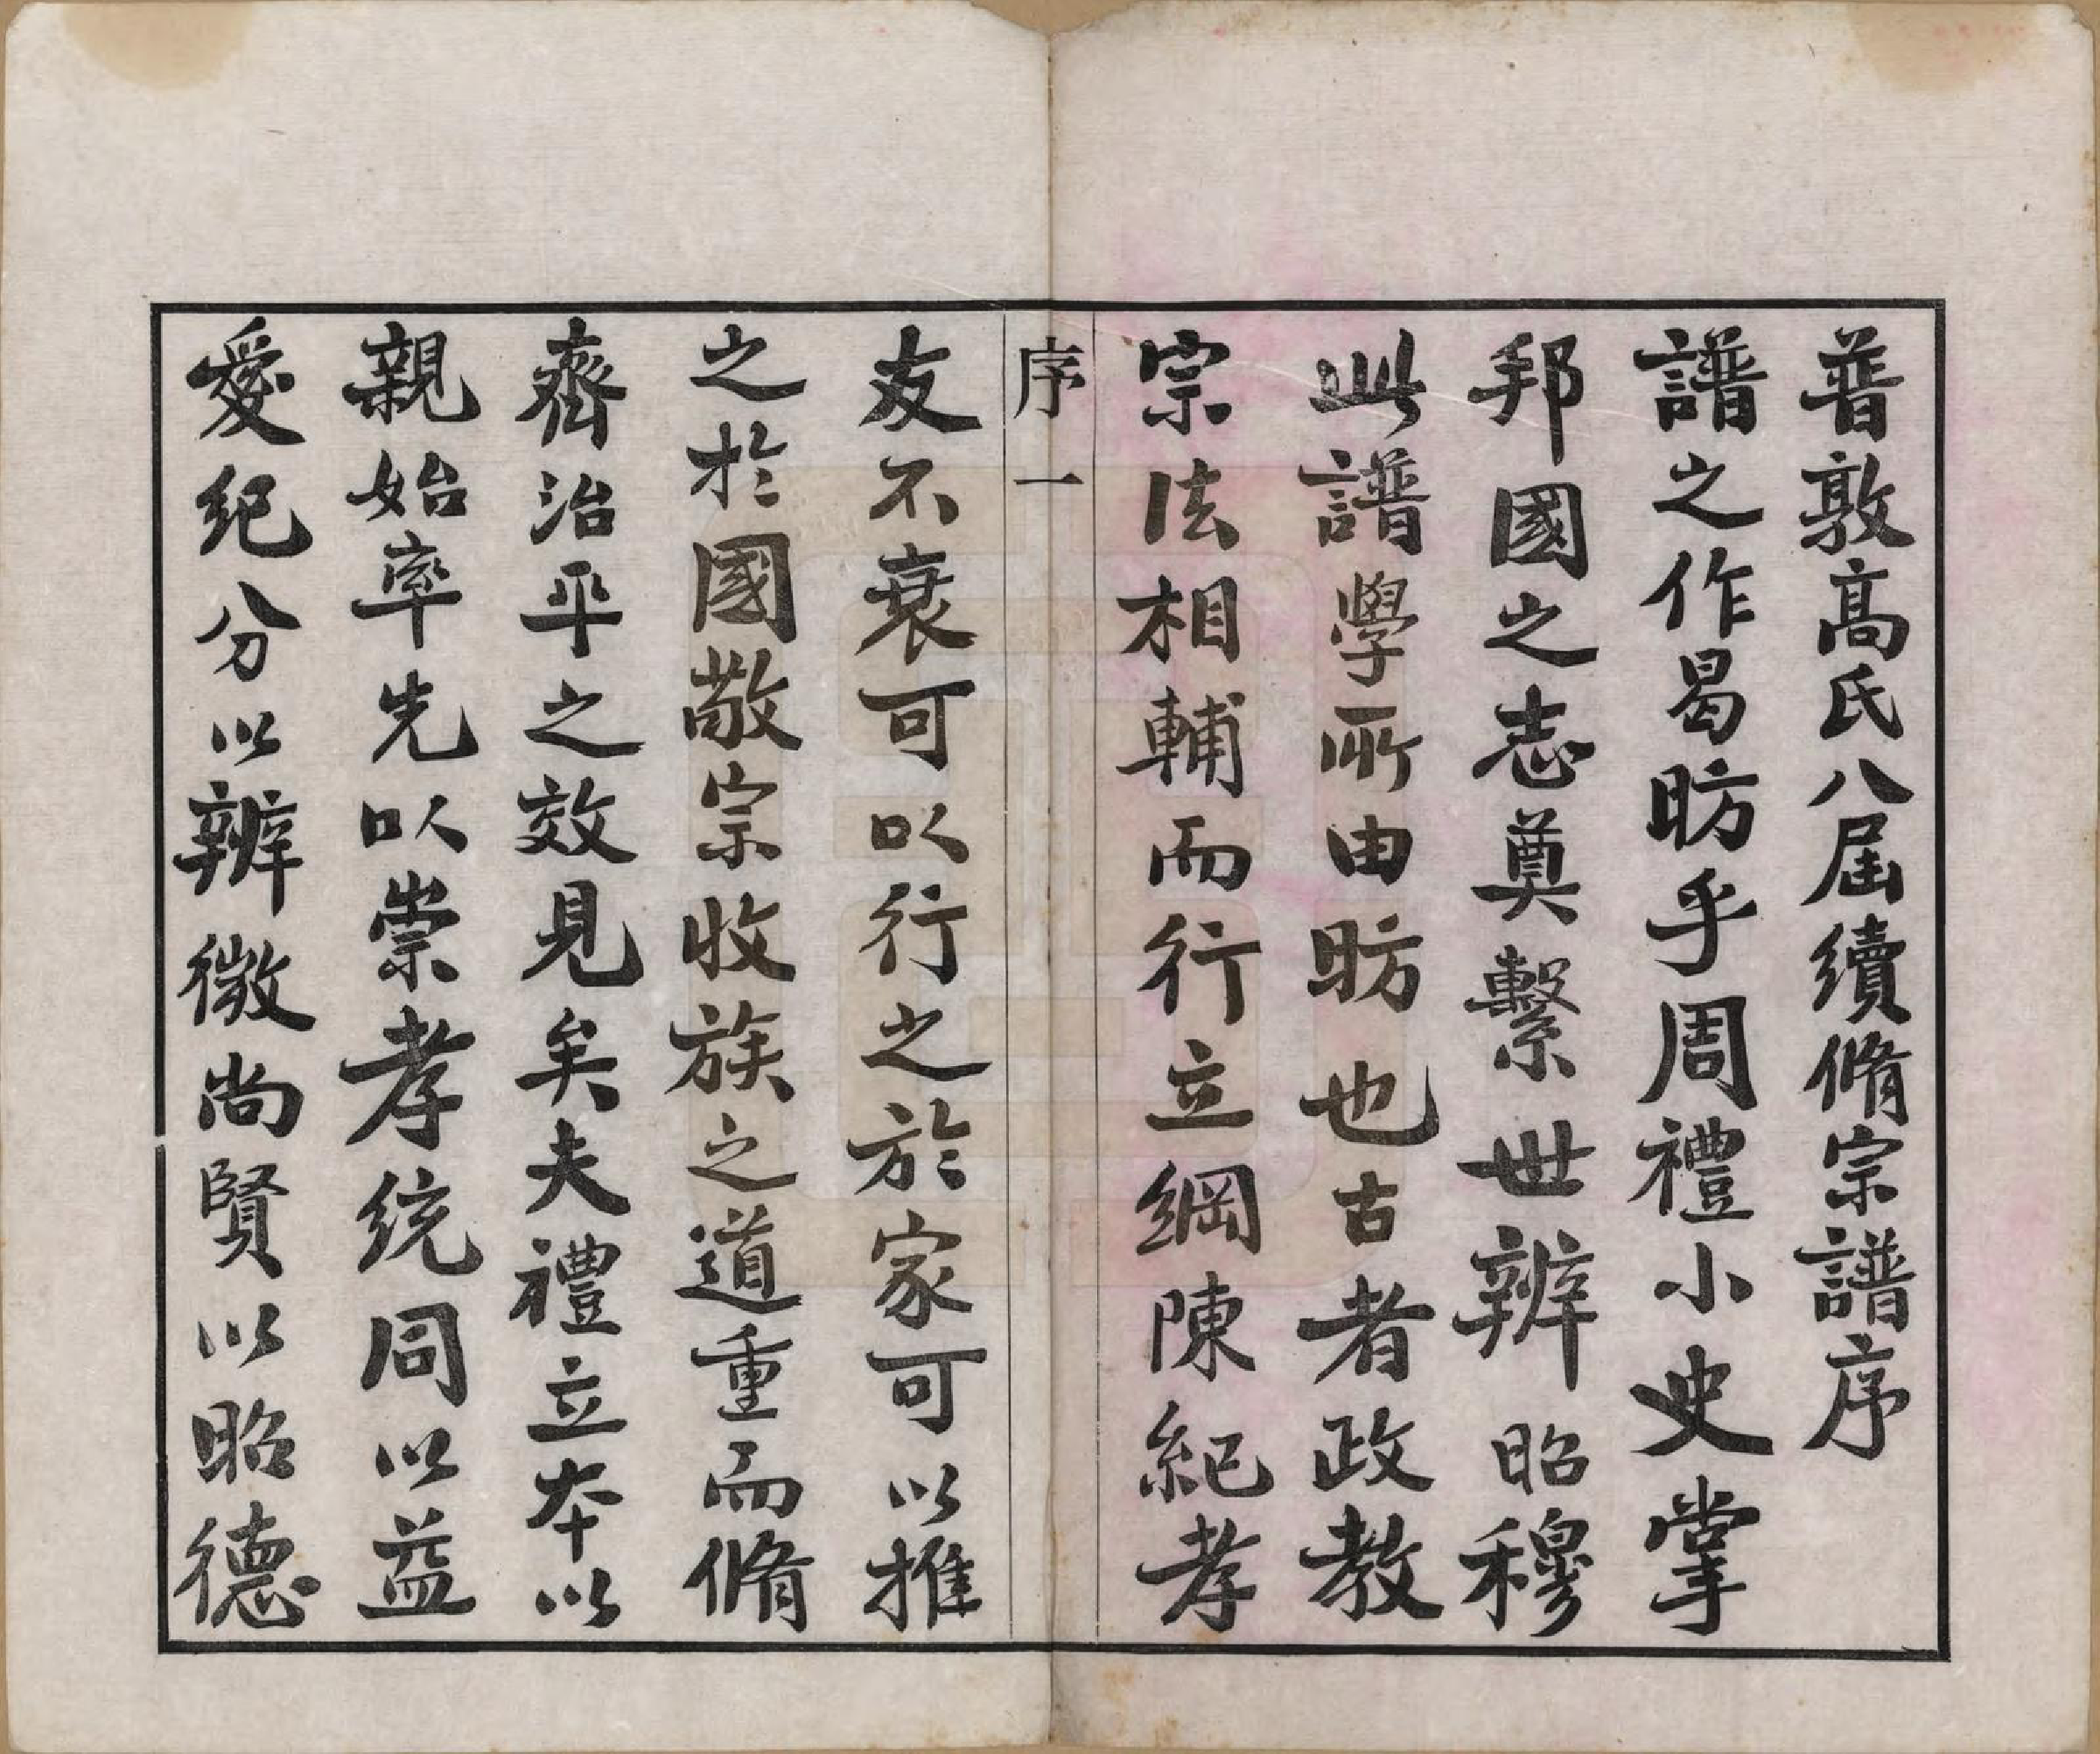 普敦高氏八屆續脩宗譜序
譜之作曷昉乎周禮小史掌
邦國之志奠繫世辨昭穆
此譜學所由昉也古者政教
宗法相輔而行立綱陳紀孝
序一
友不衰可以行之於家可以推
之於國敬宗收族之道重而脩
齊治平之效見矣夫禮立本以
親始率先以崇孝統同以益
愛紀分以辨微尚賢以昭德